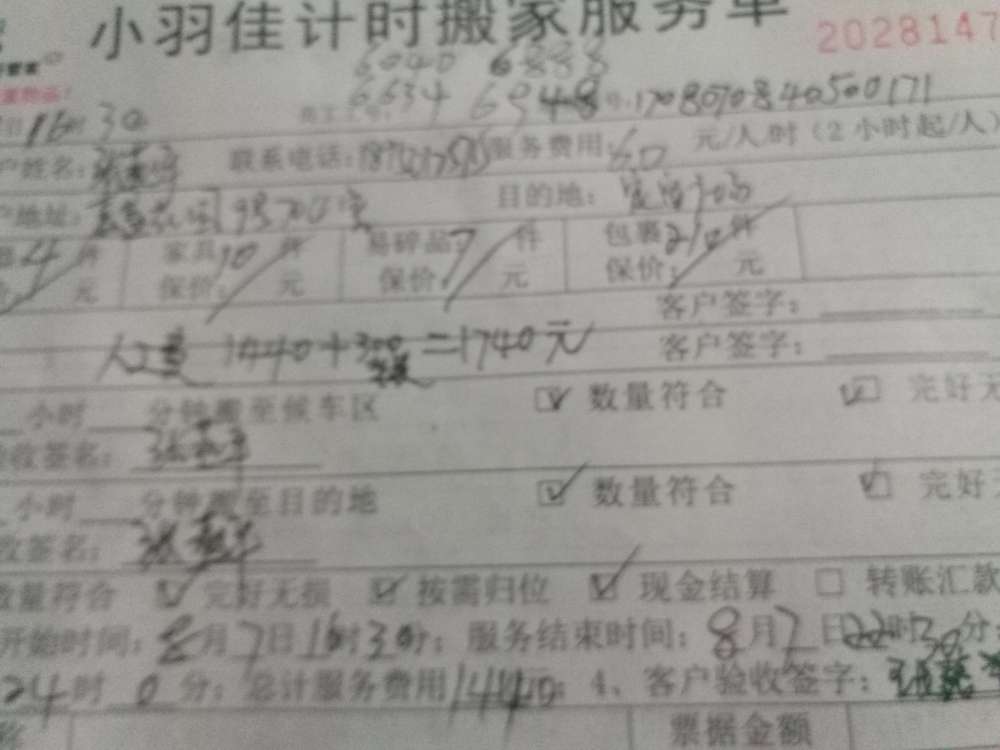 小羽佳计时搬家服务单
2028147
6040 6888
6634 6948 1708070840500171
16时30
户姓名: 联系电话: 服务费用:60 元/人时(2小时起/人)
户地址: 目的地:
4件 家具10件 易碎品7件 包裹210件
元 保价: 元 保价: 元 保价: 元
客户签字:
人工费 1440+300=1740元 客户签字:
小时 分钟搬至候车区 ☑数量符合 ☑完好无
收签名:
小时 分钟搬至目的地 ☑数量符合 ☑完好
收签名:
数量符合 ☑完好无损 ☑按需归位 ☑现金结算 □转账汇款
开始时间:8月7日16时30分;服务结束时间:8月7日22时30分
24时0分;总计服务费用1440元;4、客户验收签字:
票据金额